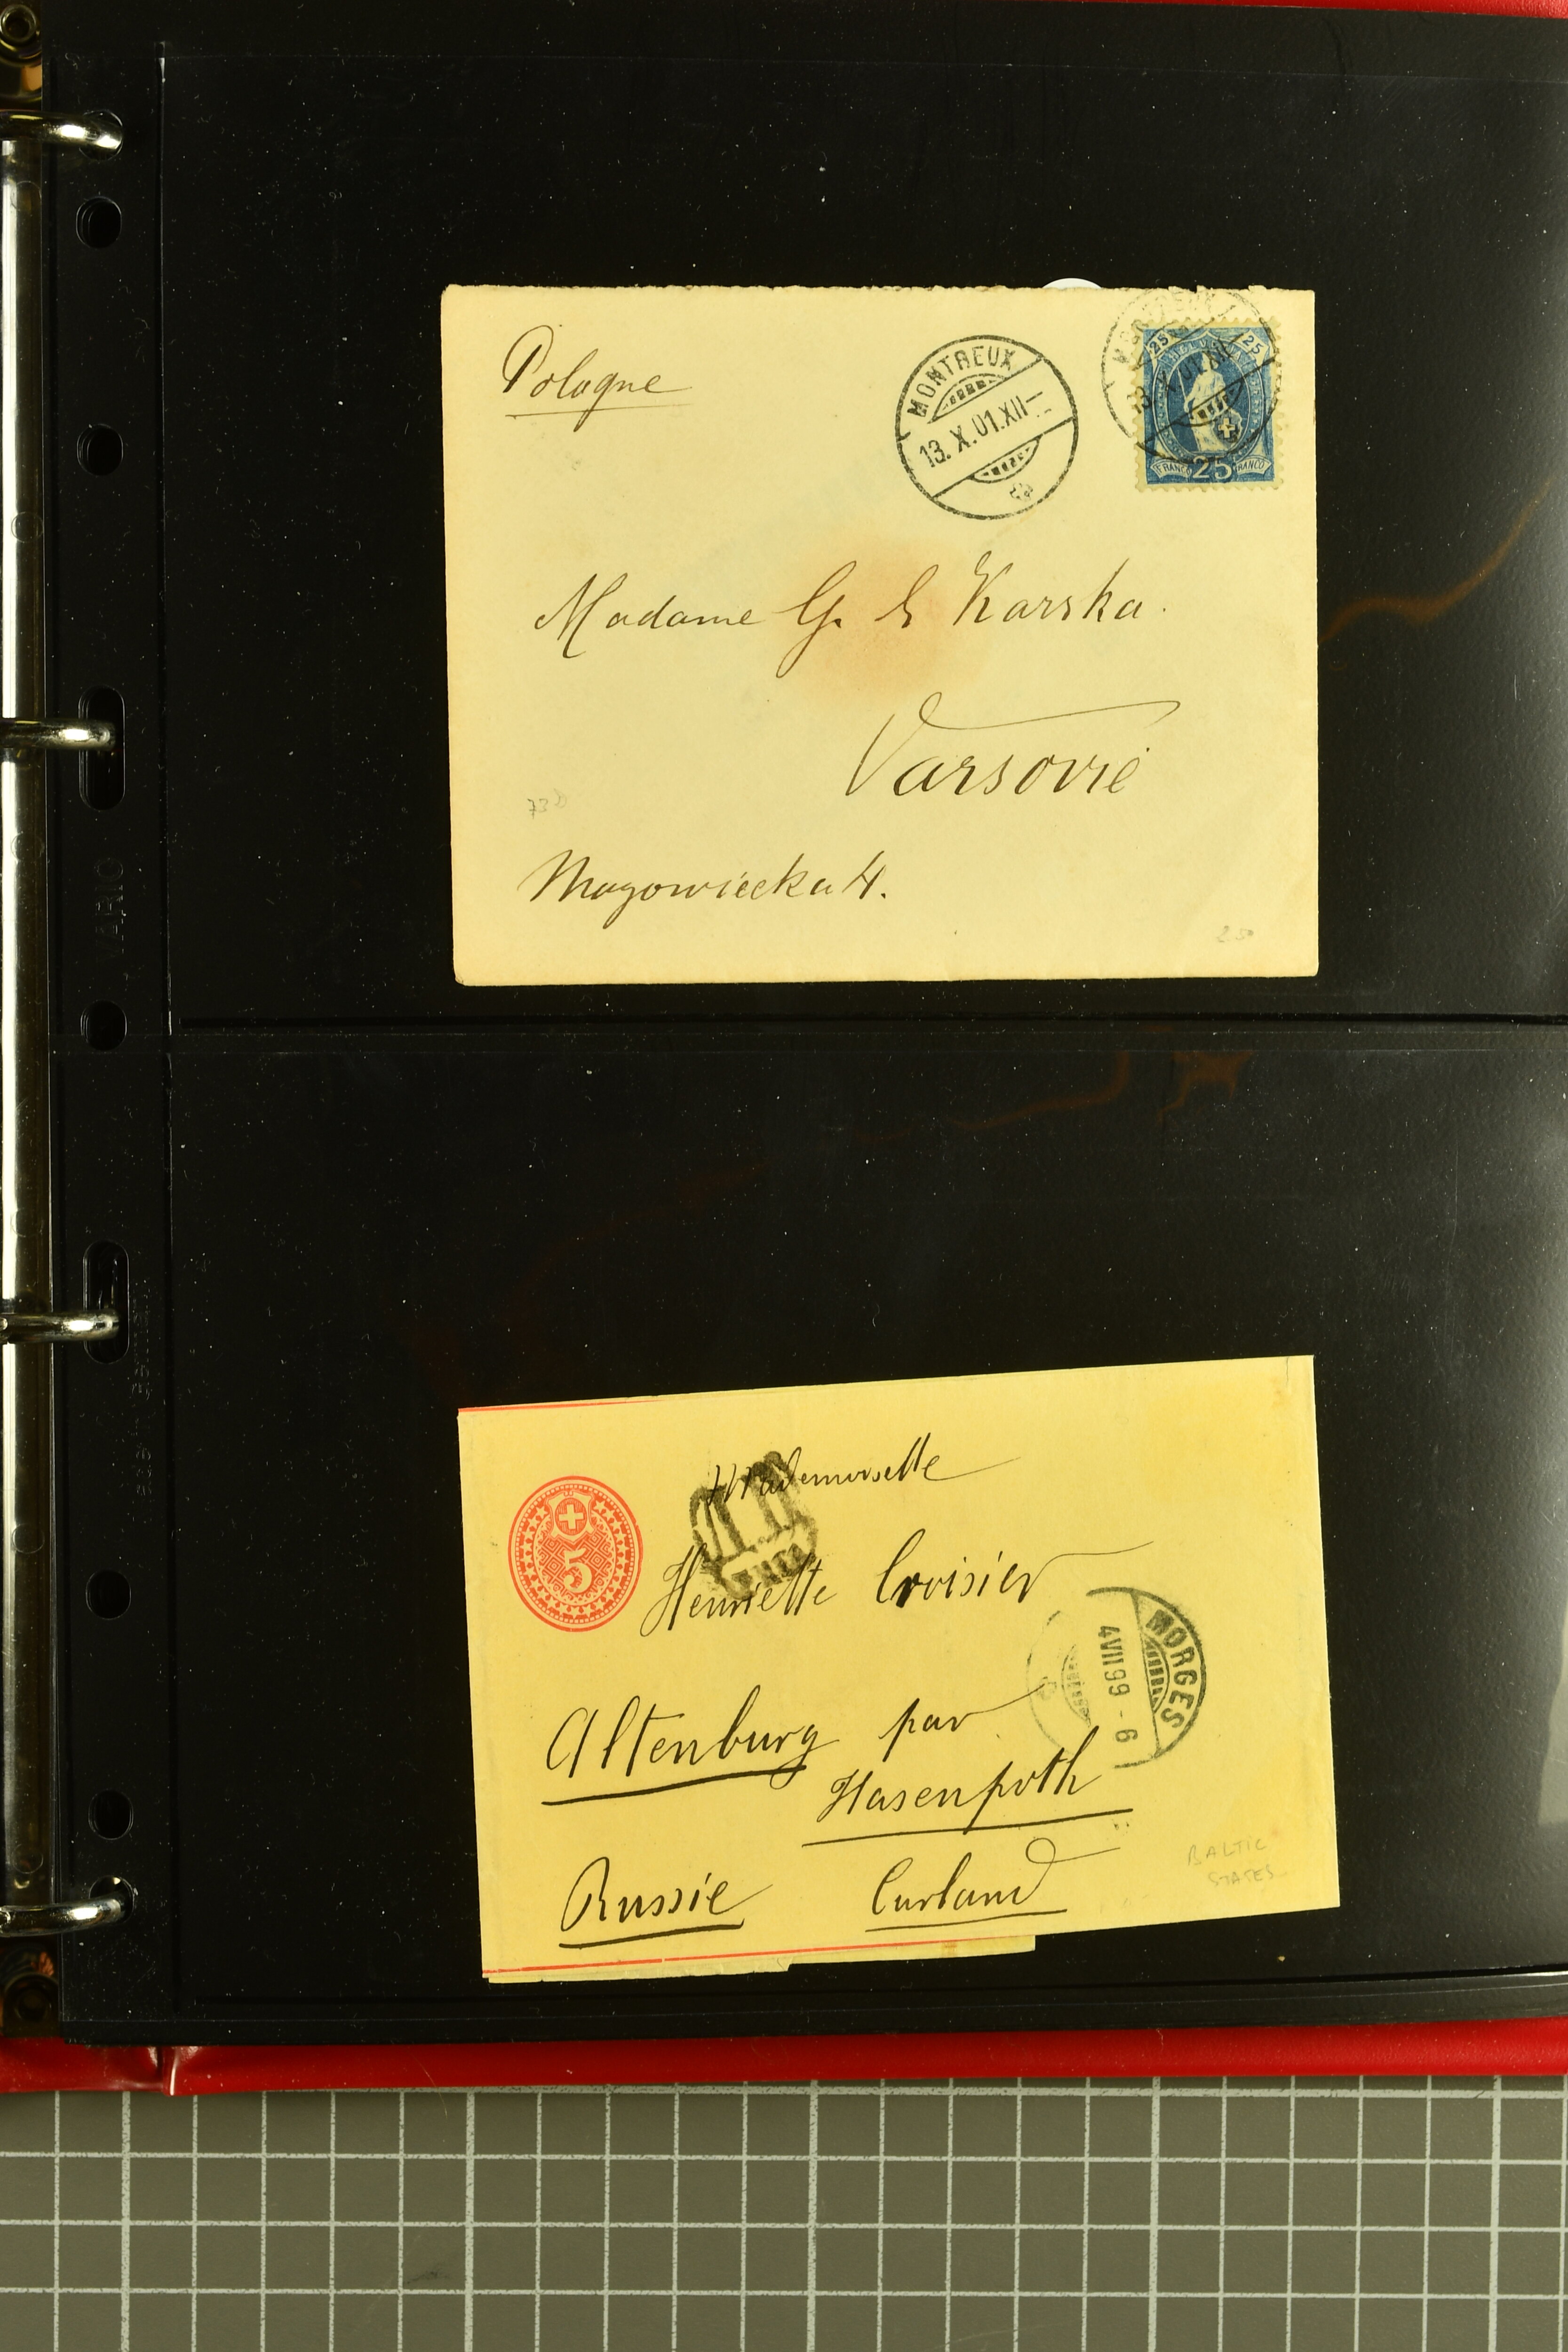 Pologne
MONTREUX
13. X. 01. XII
25 HELVETIA 25
FRANCO 25 FRANCO
Madame G. Karska
Varsovie
73D
Mazowiecka 4.
2.50
VARIO
Mademoiselle
5
Henriette Croisier
MORGES
4 VII 99 - 6
Altenburg par
Hasenpoth
Russie Curland
BALTIC
STATES